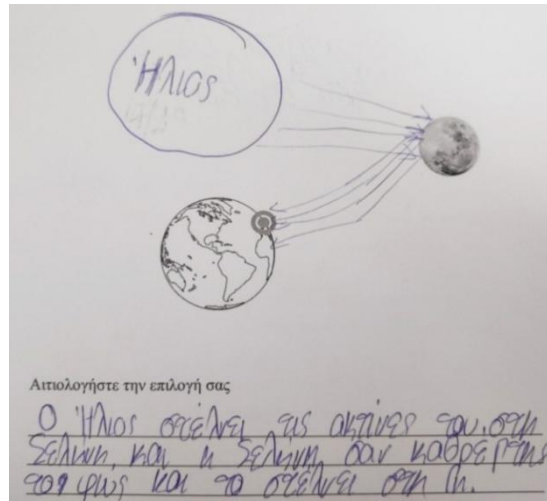 Ήλιος
Αιτιολογήστε την επιλογή σας
Ο Ήλιος στέλνει τις ακτίνες του στη
Σελήνη και η Σελήνη σαν καθρεμτης
το φως και το στέλνει στη Γη.